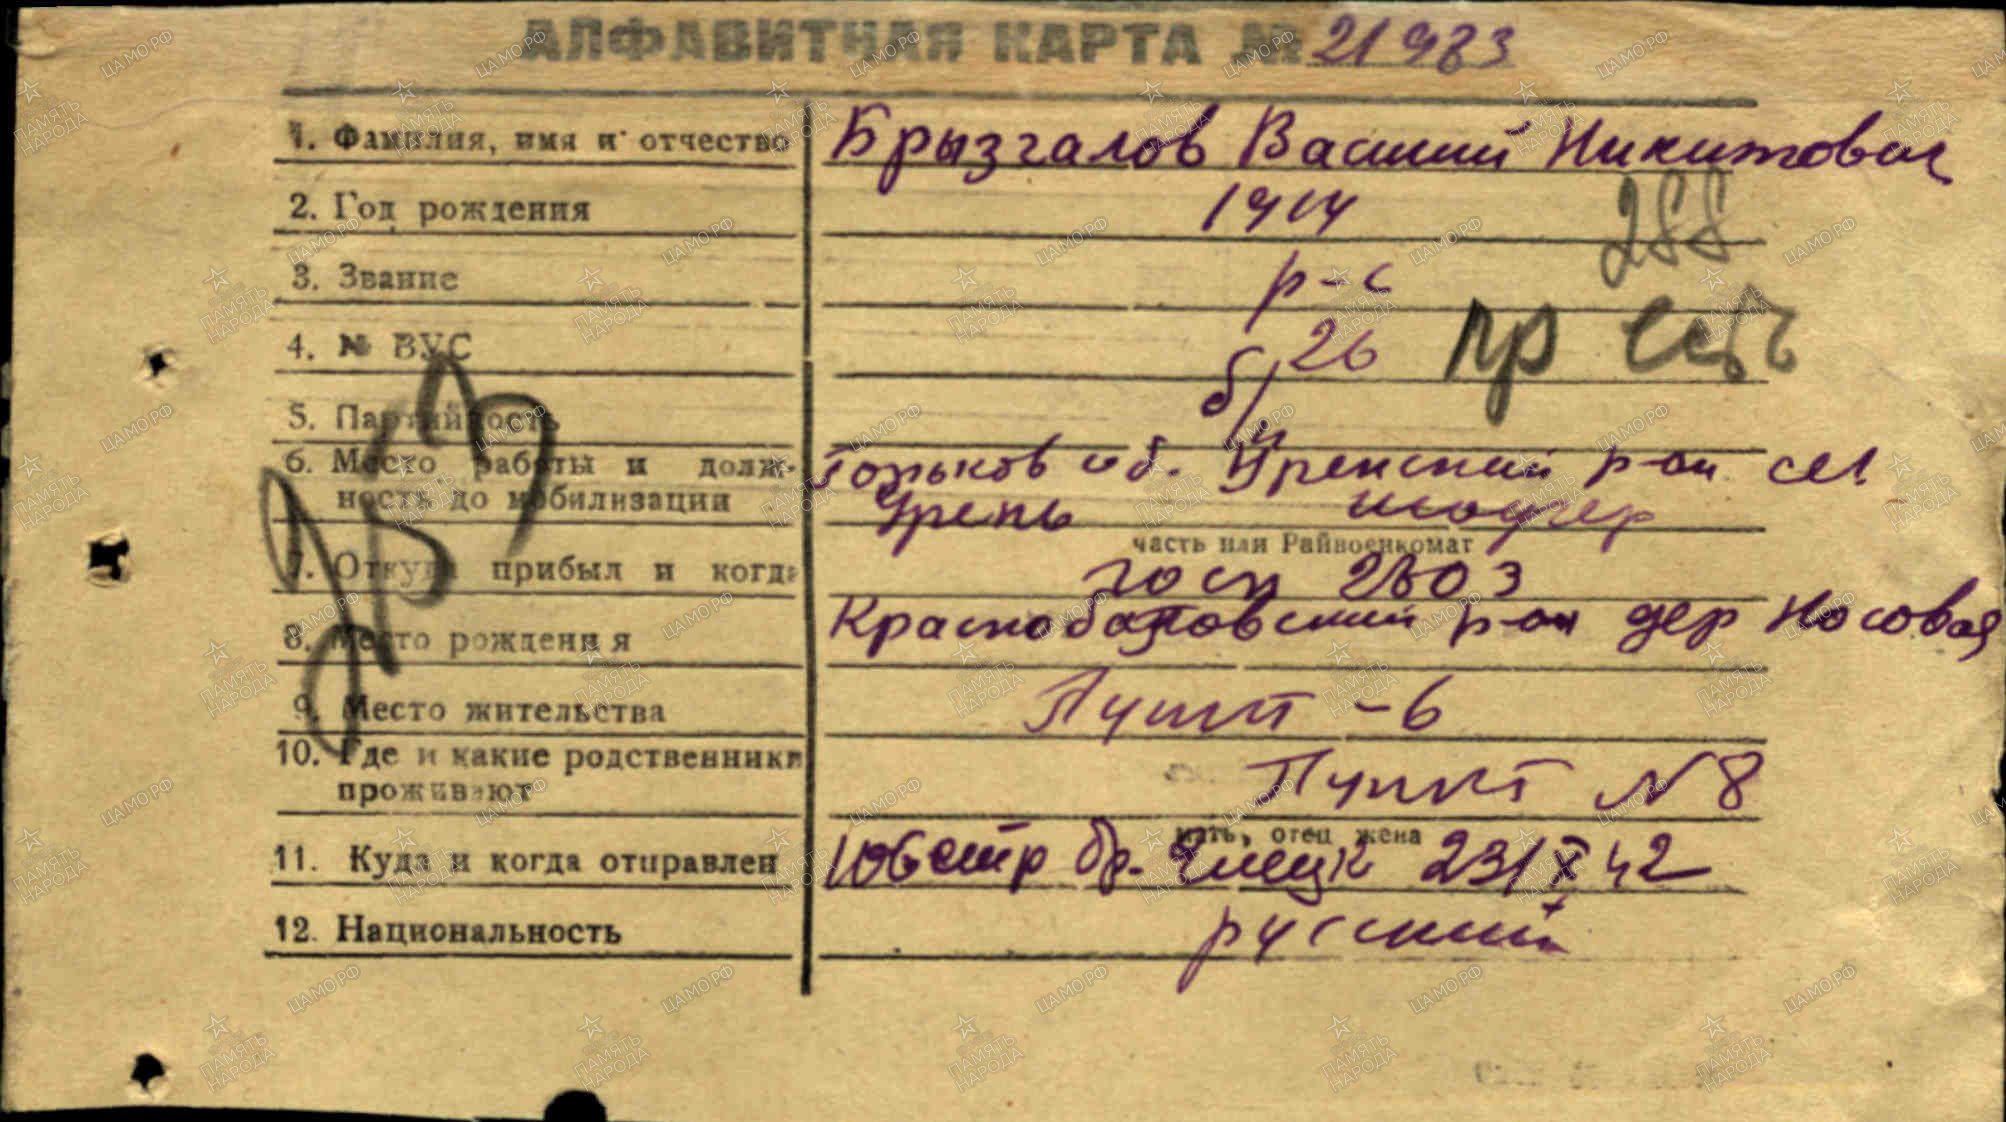 АЛФАВИТНАЯ КАРТА № 21983
1. Фамилия, имя и отчество Брызгалов Василий Никитович
2. Год рождения 1914
288
3. Звание р-с
4. № ВУС 26
пр есть
5. Партийность б/
6. Место работы и долж- Горьков об. Уренский р-он сел
ность до мобилизации Урень шофер
часть или Райвоенкомат
7. Откуда прибыл и когда госп 2803
8. Место рождения Краснобаковский р-он дер Носовая
9. Место жительства Пункт - 6
10. Где и какие родственники
проживают Пункт № 8
мать, отец жена
11. Куда и когда отправлен 106 стр бр. Елецк 23/X 42
12. Национальность русский
ПАМЯТЬ НАРОДА
ЦАМО.РФ